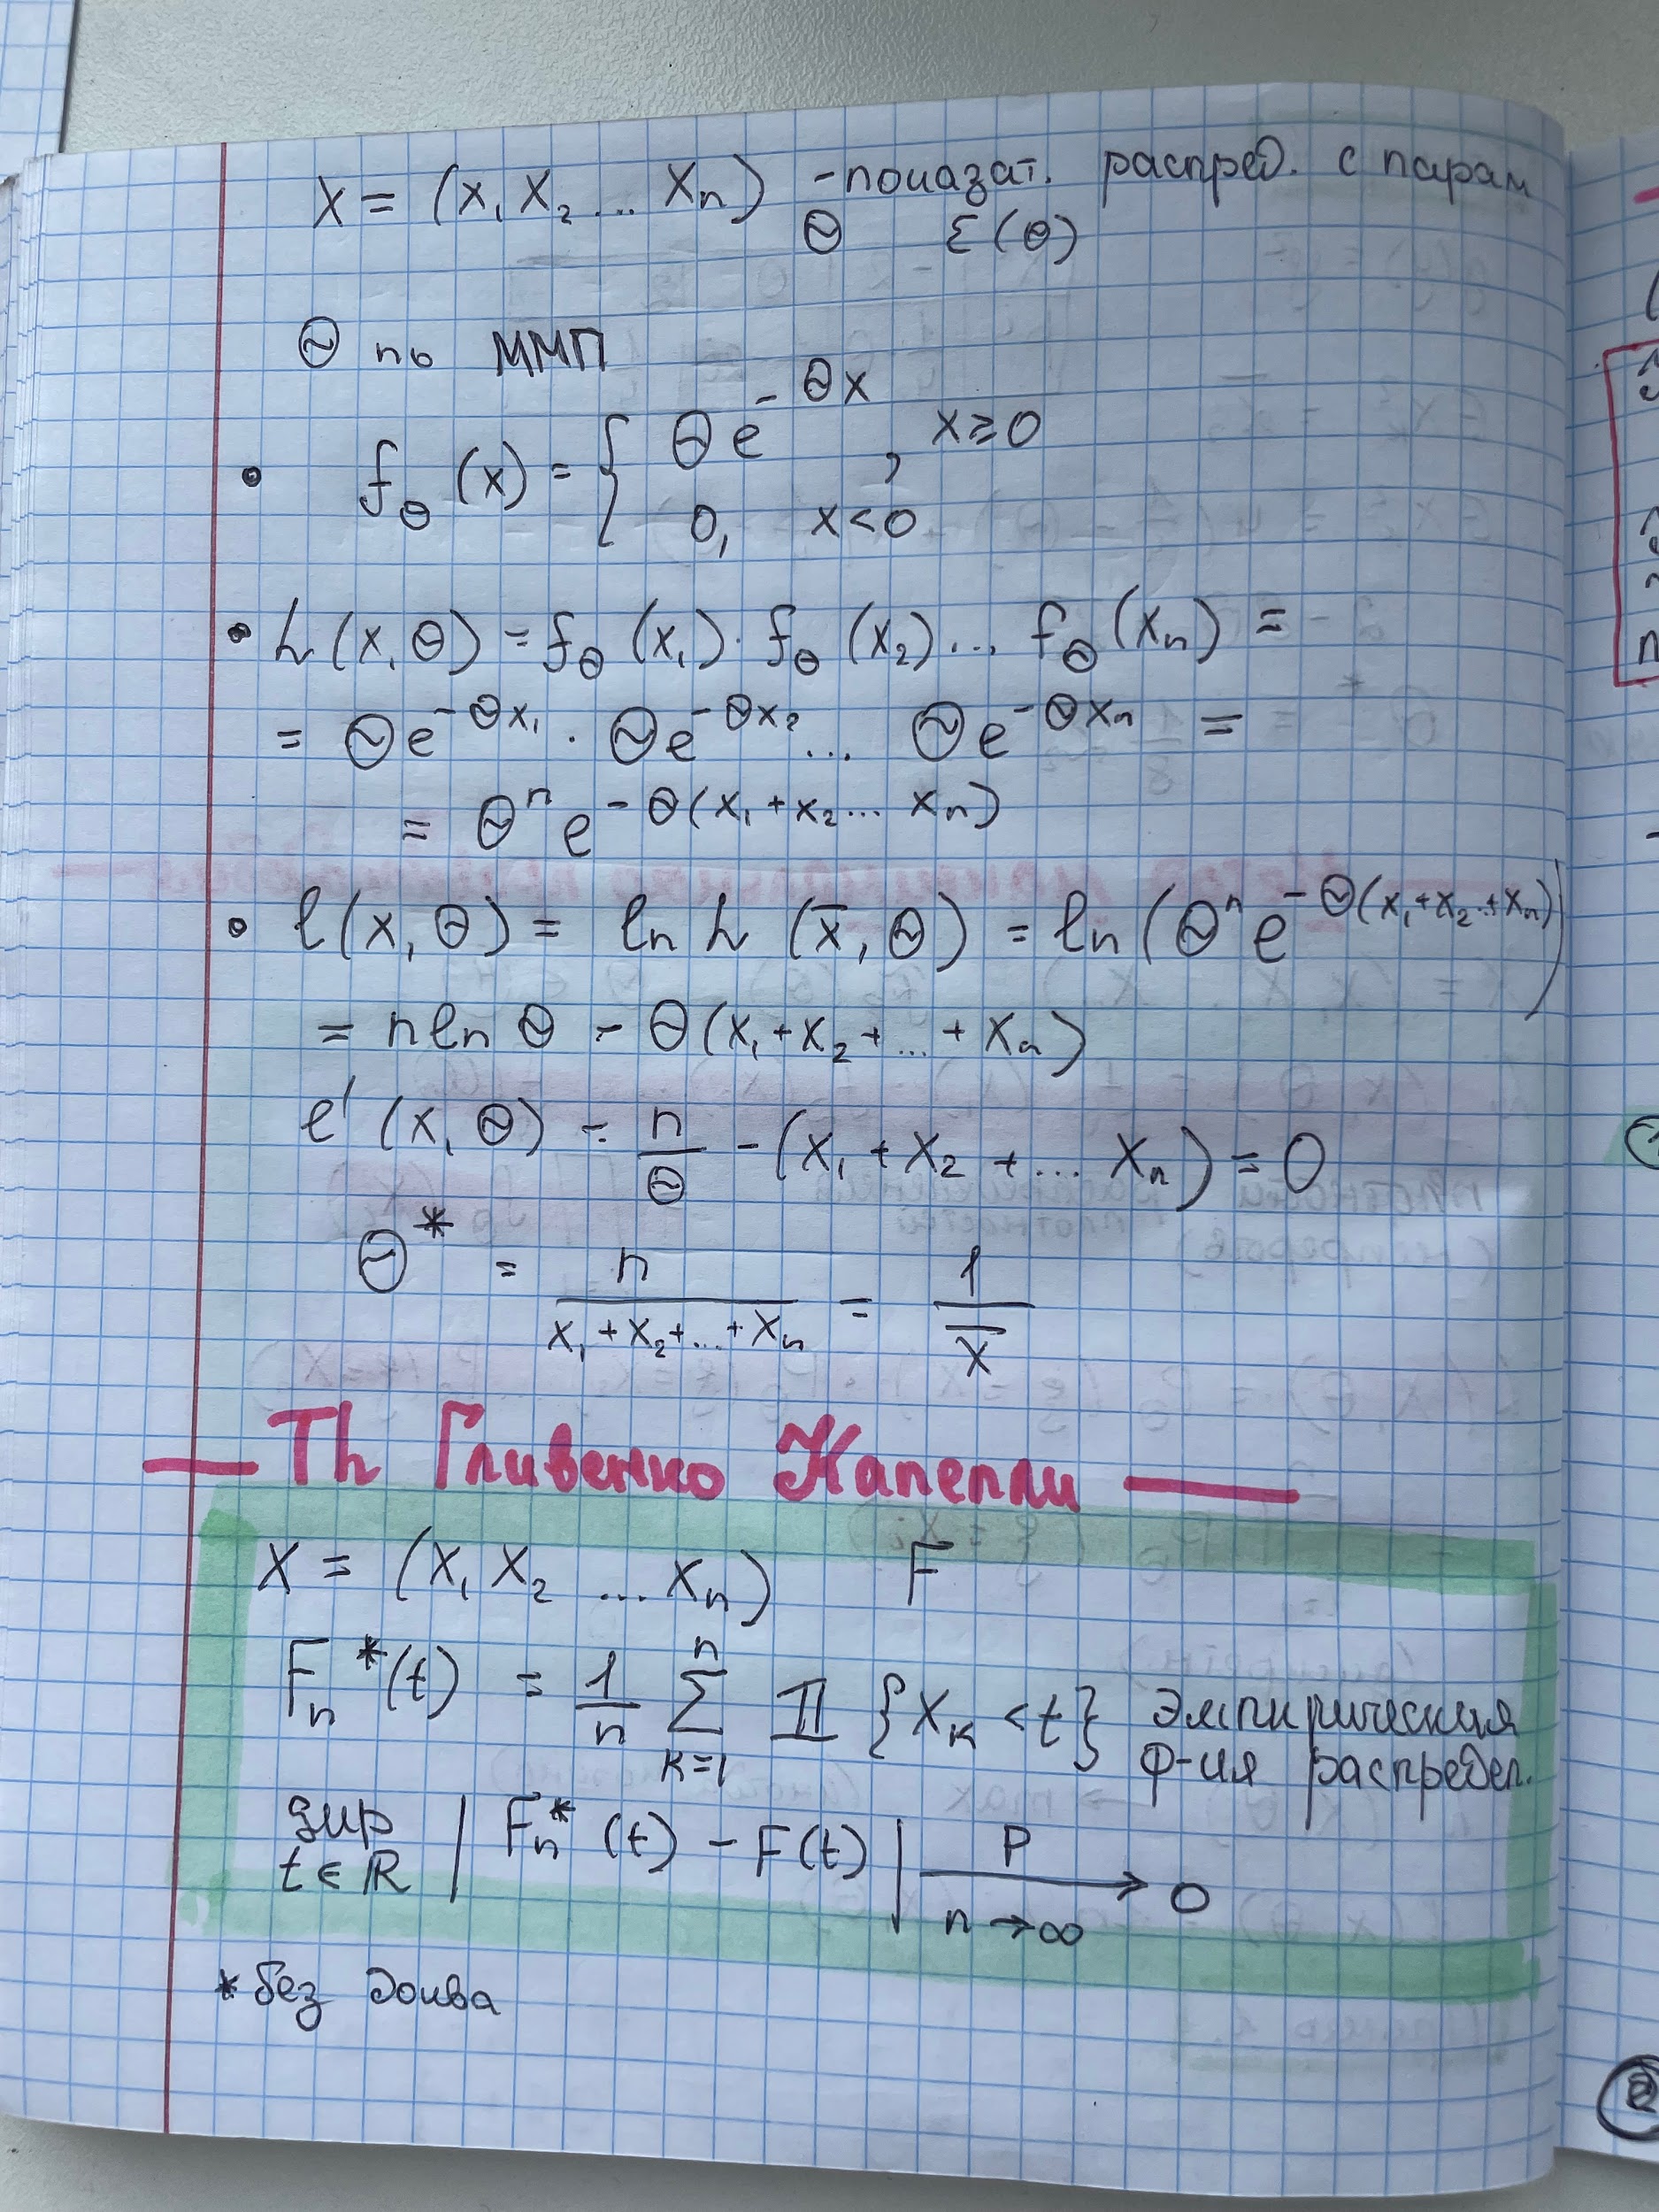 X = (X₁ X₂ ... Xₙ) - показат. распред. с парам
Θ Ɛ(Θ)
Θ по ММП
• f_Θ (x) = { Θe^{-Θx}, x ≥ 0
0, x < 0
• L(x, Θ) = f_Θ (x₁) · f_Θ (x₂) ... f_Θ (xₙ) =
= Θe^{-Θx₁} · Θe^{-Θx₂} ... Θe^{-Θxₙ} =
= Θⁿ e^{-Θ(x₁ + x₂ ... xₙ)}
• l(x, Θ) = ln L (x̄, Θ) = ln (Θⁿ e^{-Θ(x₁+x₂..+xₙ)})
= n ln Θ - Θ(x₁ + x₂ + ... + xₙ)
l' (x, Θ) = n/Θ - (x₁ + x₂ + ... xₙ) = 0
Θ* = n/(x₁ + x₂ + ... + xₙ) = 1/x̄
Th Гливенко Капепли
X = (X₁ X₂ ... Xₙ) F
Fₙ*(t) = 1/n ∑_{k=1}^{n} 𝕀 {Xₖ < t} Эмпирическая
ф-ия распредел.
sup_{t∈ℝ} | Fₙ* (t) - F(t) | →^{P}_{n→∞} 0
* без доква